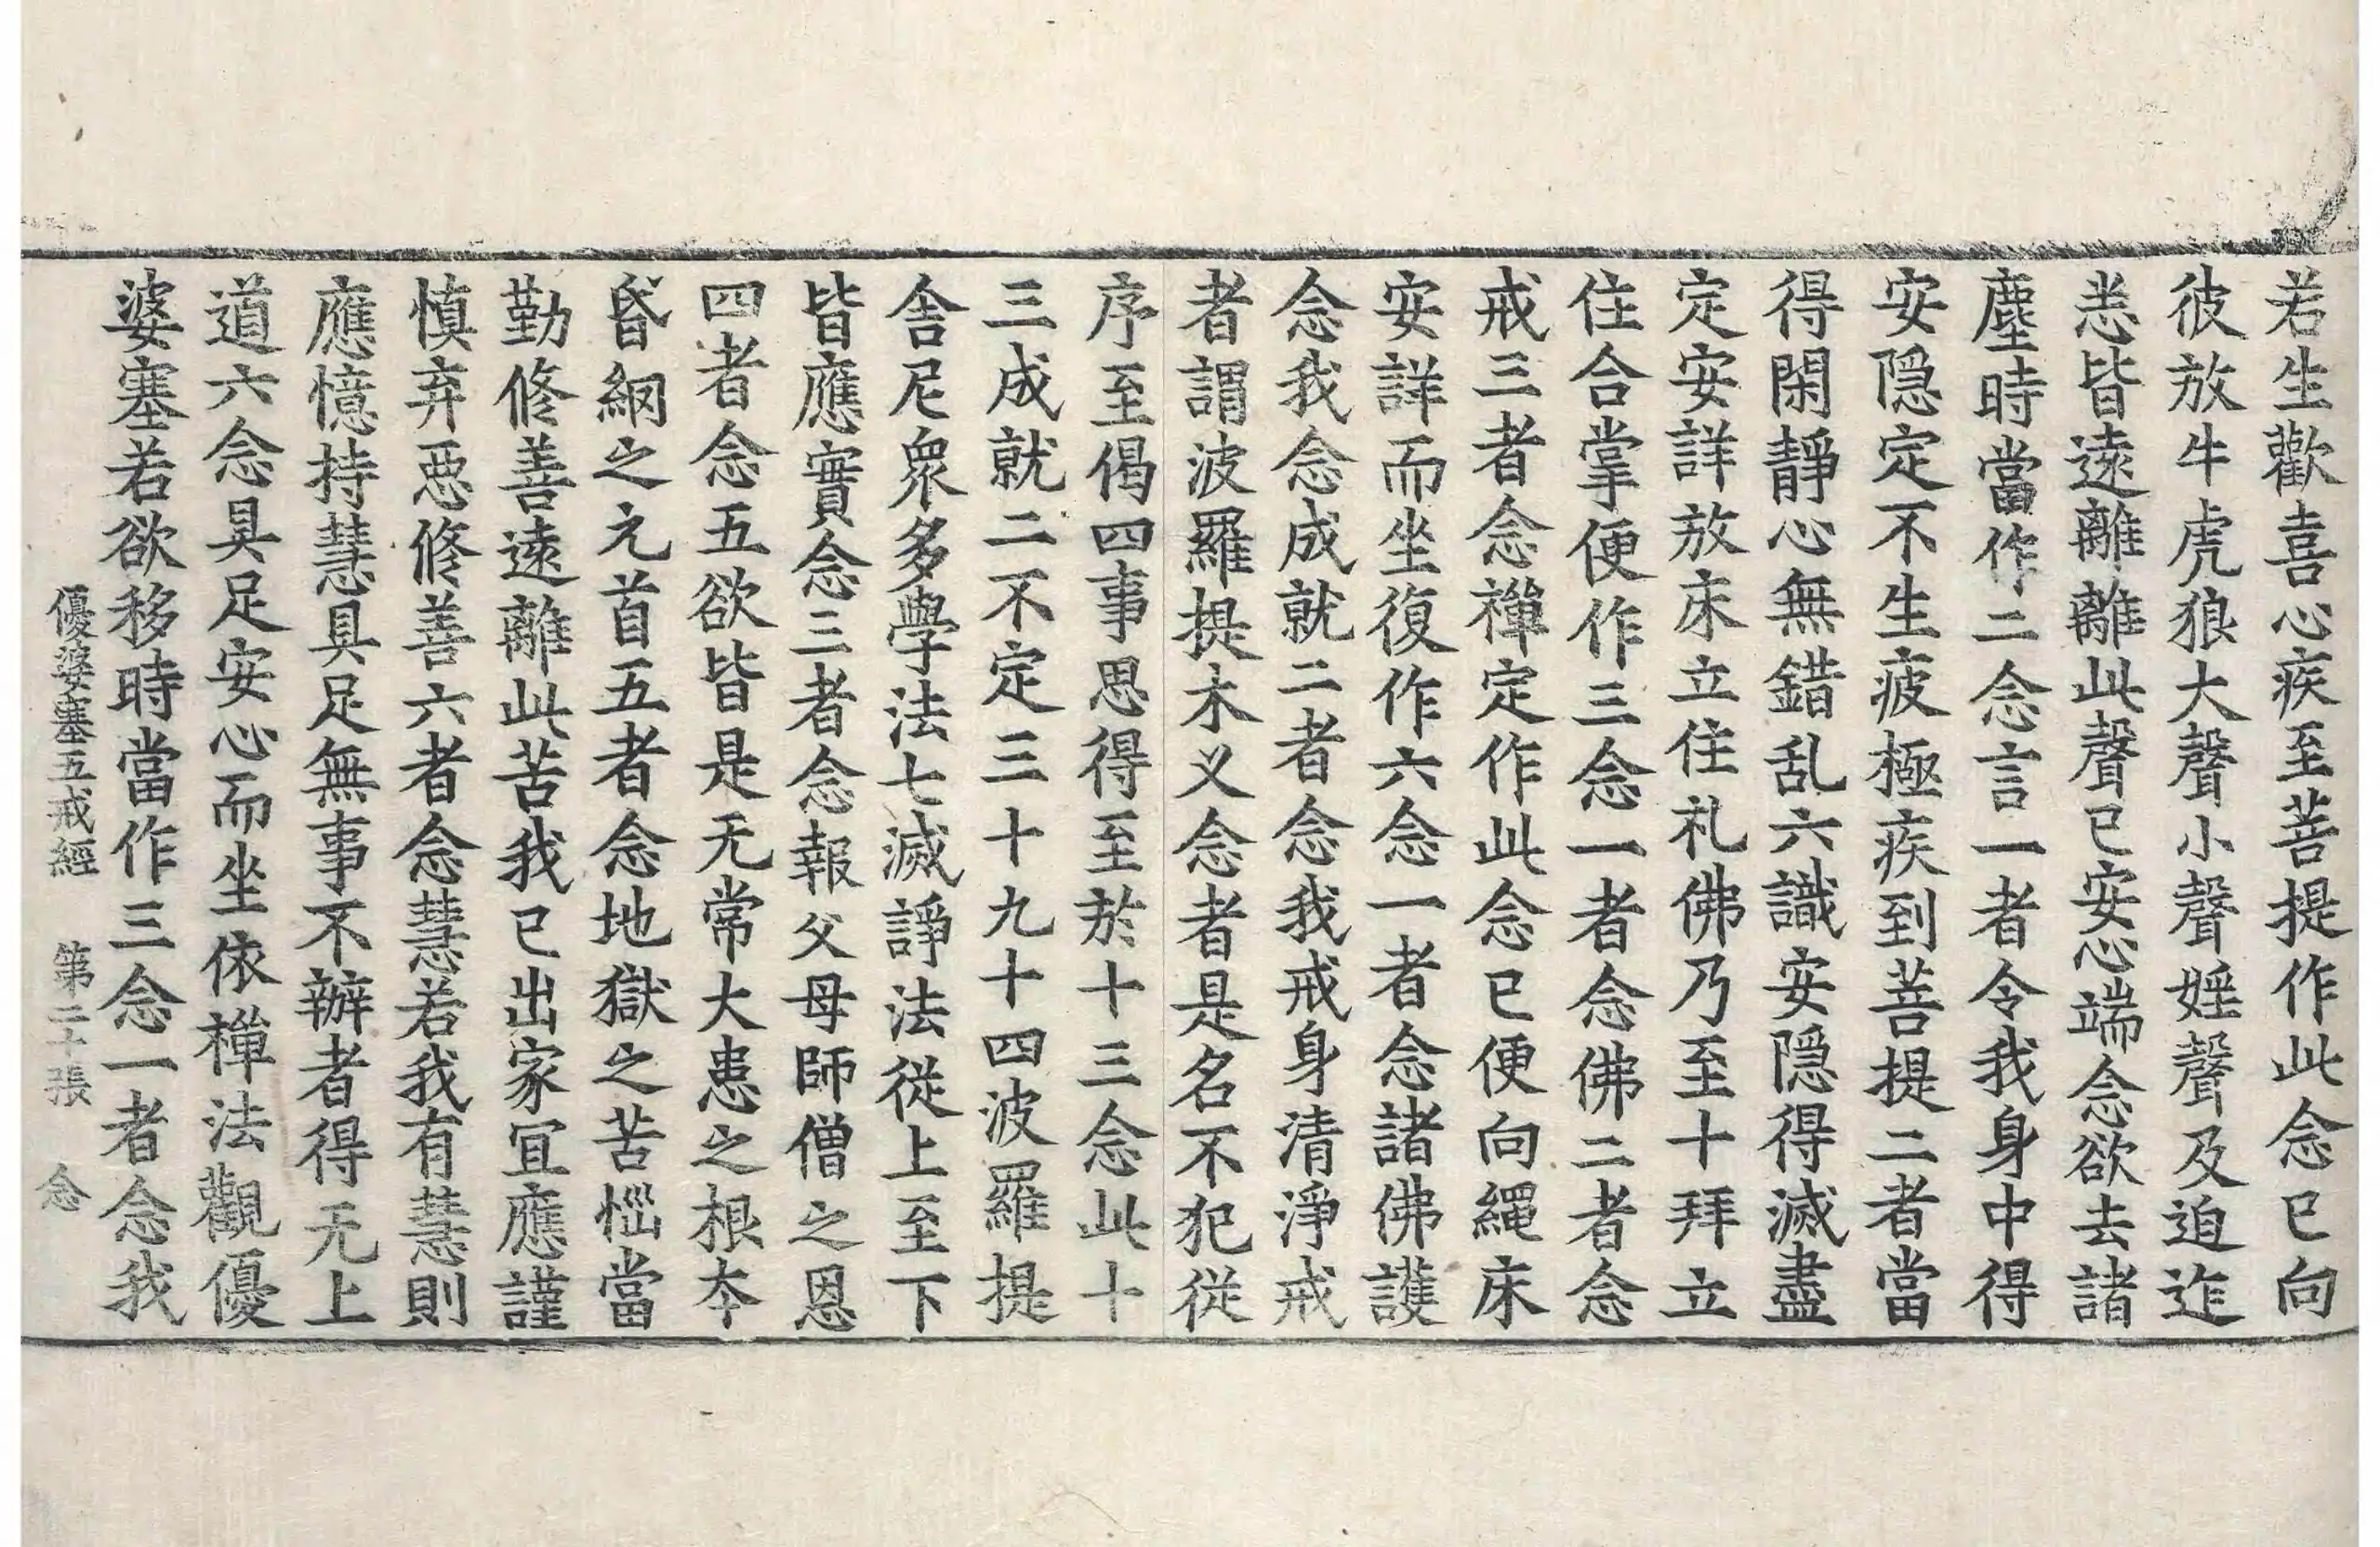 若生歡喜心疾至菩提作此念已向
彼放牛虎狼大聲小聲婬聲及迫迮
恙皆遠離離此聲已安心端念欲去諸
塵時當作二念言一者令我身中得
安隠定不生疲極疾到菩提二者當
得閑靜心無錯乱六識安隠得滅盡
定安詳放床立住礼佛乃至十拜立
住合掌便作三念一者念佛二者念
戒三者念禪定作此念已便向繩床
安詳而坐復作六念一者念諸佛護
念我念成就二者念我戒身清淨戒
者謂波羅提木义念者是名不犯從
序至偈四事思得至於十三念此十
三成就二不定三十九十四波羅提
舍尼衆多學法七滅諍法從上至下
皆應實念三者念報父母師僧之恩
四者念五欲皆是无常大患之根夲
昏網之元首五者念地獄之苦惱當
勤修善遠離此苦我已出家宜應謹
慎弃惡修善六者念慧若我有慧則
應憶持慧具足無事不辦者得无上
道六念具足安心而坐依禪法觀優
婆塞若欲移時當作三念一者念我
優婆塞五戒經 第二十張 念